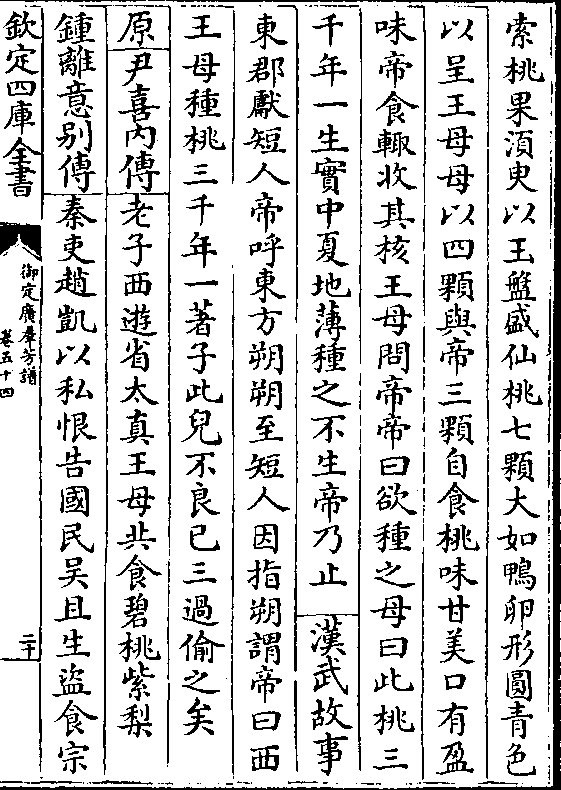 索桃果湏臾以玉盤盛仙桃七顆大如鴨卵形圓青色
以呈王母母以四顆與帝三顆自食桃味甘美口有盈
味帝食輙收其核王母問帝帝曰欲種之母曰此桃三
千年一生實中夏地薄種之不生帝乃止 漢武故事
東郡獻短人帝呼東方朔朔至短人因指朔謂帝曰西
王母種桃三千年一著子此兒不良已三過偷之矣
原 尹喜内傳 老子西遊省太真王母共食碧桃紫梨
鍾離意别傳 秦吏趙凱以私恨告國民吴且生盜食宗
欽定四庫全書
御定廣羣芳譜
卷五十四
二十